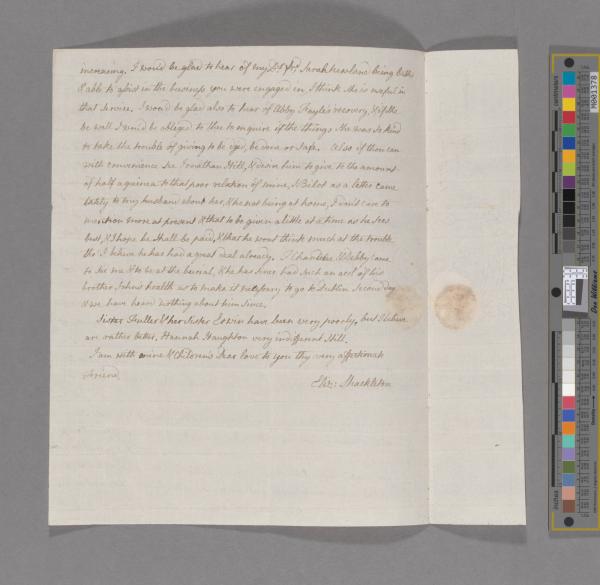 increasing. I would be glad to hear of my Dr. Fr. Sarah Newland being better
& able to assist in the business you were engaged in, I think she is useful in
that service. I would be glad also to hear of Abby Fayle's recovery, & if she
be well I would be obliged to thee to enquire if the things she was so kind
to take the trouble of giving to be dyed, be done or safe. Also if thou can
with convenience see Jonathan Hill, & desire him to give to the amount
of half a guinea to that poor relation of mine, as a letter came
lately to my husband about her, & he not being at home, I don't care to
mention more at present & that to be given a little at a time as he sees
best, & I hope he shall be paid, & that he wont think much at the trouble
tho' I believe he has had a great deal already. & Debby came
to see me & to be at the burial, & he has since had such an acct. of his
brother John's health as to make it necessary to go to Dublin second day
& we have heard nothing about him since.
Sister Fuller & her Sister have been very poorly, but I believe
are rather better. Hannah Haughton very indifferent still.
I am with mine & Children's dear love to you thy very affectionate
friend
Eliz: Shackleton
centimeters
inches
M001378
Don Williams
Density